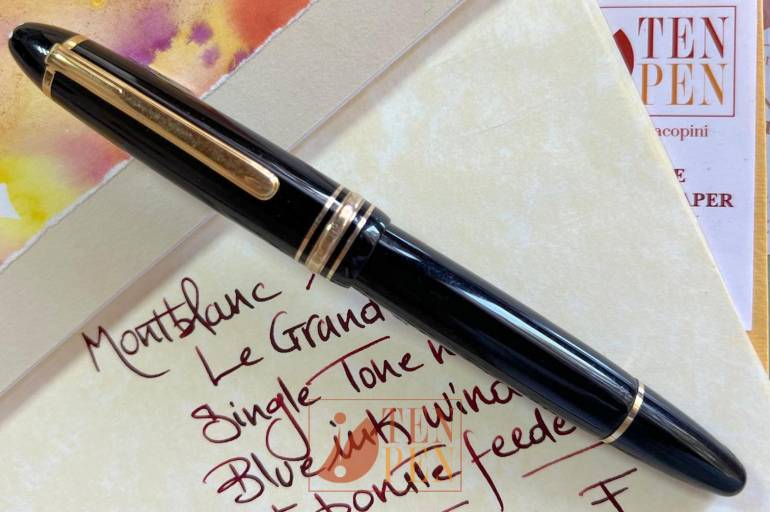 TEN
PEN
acopini
E
APER
Montblanc
Le Grand
Single Tone
Blue ink wind
bonite feede
F
TEN
PEN